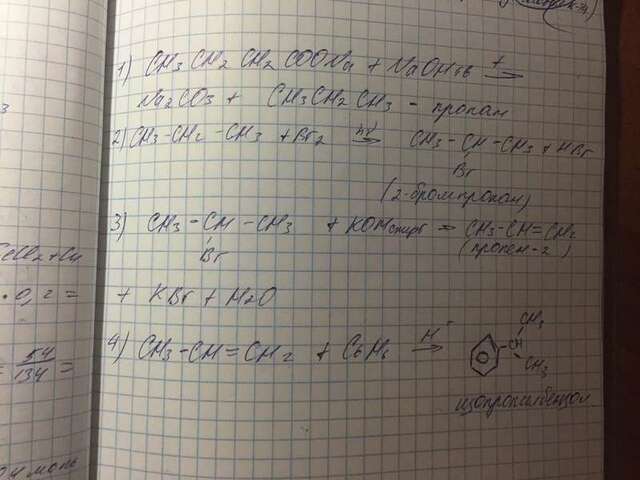 1) CH3 CH2 CH2 COONa + NaOH тв t→
Na2CO3 + CH3CH2CH3 - пропан
2) CH3 CH2 - CH3 + Br2 hν→ CH3 - CH - CH3 + HBr
Br
(2-бромпропан)
3) CH3 - CH - CH3 + KOH спирт → CH3-CH=CH2
Br
(пропен-2)
+ KBr + H2O
4) CH3 - CH = CH2 + C6H6 H+→
CH
CH3
CH3